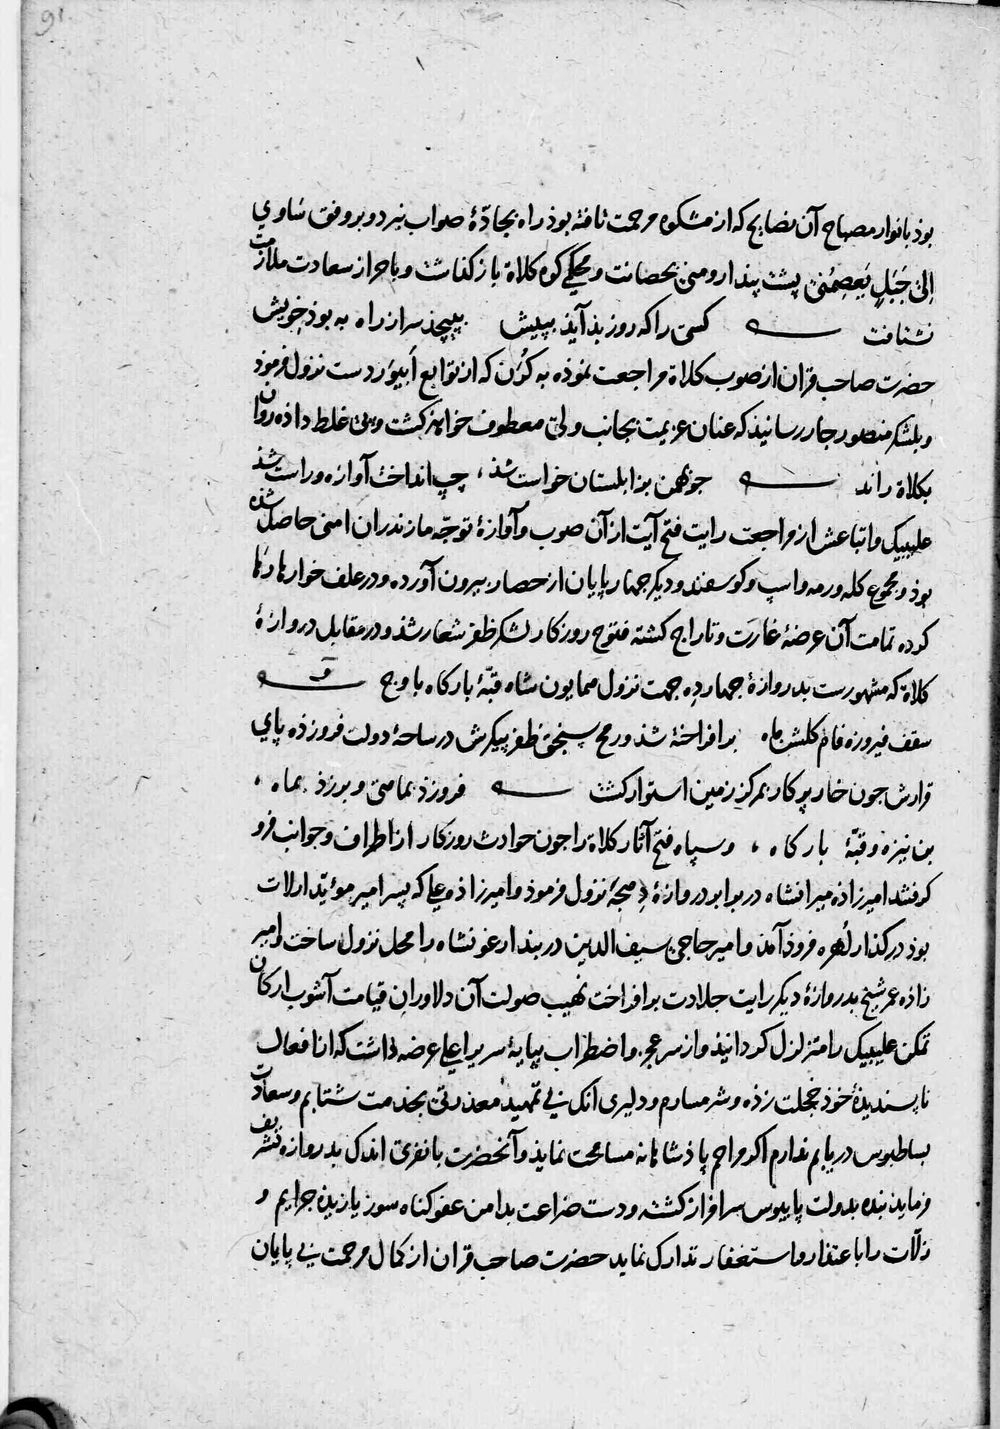 91
بوذ بانوار مصباح آن نصایح که از مشکوه مرحمت تافته بوذ راه بجادّهٔ صواب نبرد و بر وفق سَاوی
اِلیٰ جَبَلٍ یَعصِمُنی پشت پندار و منی بحصانت و محکمی کوه کلاة باز کذاشت و باحراز سعادت ملازمت
نشتافت کسی را که روز بذ آیذ بپیش بپیچذ سر از راه به بوذ خویش
حضرت صاحب قران از صوب کلاة مراجعت نموذه به کَوُرن که از توابع اَبیوَردست نزول فرموذ
و بلشکر منصور جار رسانیذ که عنان عزیمت بجانب ولی معطوف خواهذ کشت و پی غلط داذه روان
بکلاة راند جو بهمن بزابلستان خواست شذ ، چپ انداخت آوازه و راست شذ
علیبیک و اتباعش از مراجعت رایت فتح آیت از آن صوب و آوازهٔ توجّه مازندران امنی حاصل شده
بوذ و مجموع کله و رمه و اسپ و کوسفند و دیکر جهارپایان از حصار بیرون آورده و در علف خوارها رها
کرده تمامت آن عرضهٔ غارَت و تاراج کشته فتوح روزکار لشکر ظفر شعار شذ و در مقابل دروازهٔ
کلاة که مشهورست بدروازهٔ جهارده جهت نزول همایون شاه قبّهٔ بارکاه باوج
سقف فیروزه فام کلشن ماه برافراخته شذ و رمح سنجق ظفر پیکرش در ساحهٔ دولت فروزذه پای
قرارش جون خار پرکار بمرکز زمین استوار کشت فروزذ بماهی و برزذ بماه ،
بن نیزه و قبّهٔ بارکاه ، و سپاه فتح آثار کلاة را جون حوادث روزکار از اطراف و جوانب فرو
کرفتند امیرزاذه میرانشاه در برابر دروازهٔ دِهجه نزول فرموذ و امیرزاذه علی که پسر امیر مؤید ارلات
بوذ در کذار لُهره فروذ آمد و امیر حاجی سیف الدین دربند ارغونشاه را محل نزول ساخت و امیر
زاذه عمر شیخ بدروازهٔ دیکر رایت جلادت برافراخت نهیب صولت آن دلاورانِ قیامت آشوب ارکان
تمکن علیبیک را متزلزل کردانیذ و از سر عجز و اضطراب بپایهٔ سریر اعلی عرضه داشت که از افعال
ناپسندیدهٔ خوذ خجلت زذه و شرمسارم و دلیری آنک بی تمهید معذرتی بخدمت شتابم و سعادت
بساط بوس دریابم ندارم اکر مراحم پاذشاهانه مسامحت نمایذ و آنحضرت با نفری اندک بدروازه تشریف
فرماید بنده بدولت پایبوس سرافراز کشته و دست ضراعت بدامن عفو کناه سوز یازیده جرایم و
زلّات را باعتذار و استغفار تدارک نماید حضرت صاحب قران از کمال مرحمت بی پایان